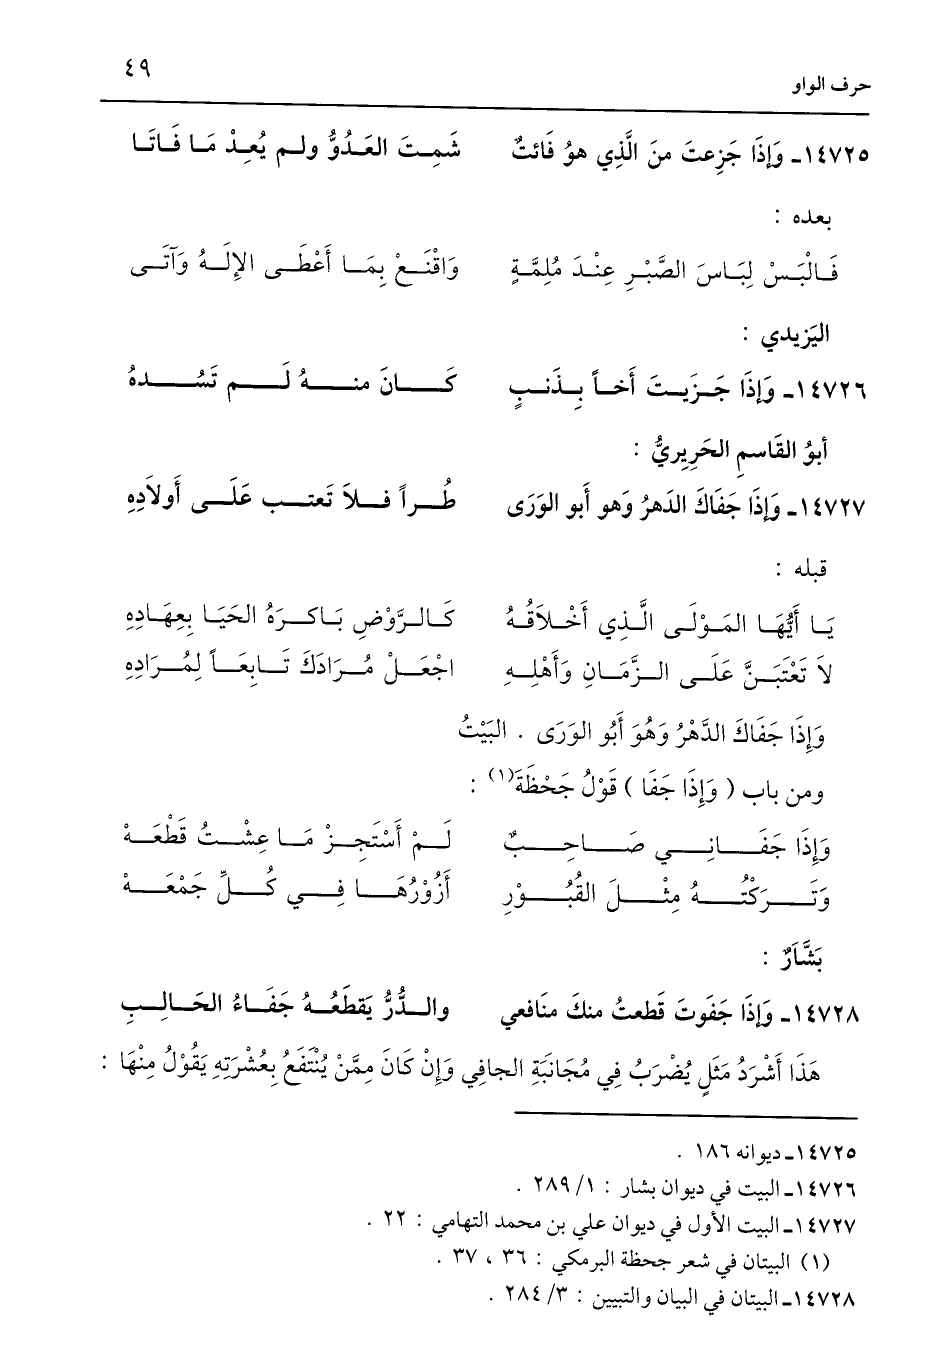 ٤٩
حرف الواو
١٤٧٢٥ـ وَإِذَا جَزِعتَ منَ الَّذِي هوُ فَائتٌ شَمِتَ العَدُوُّ ولم يُعِدْ مَا فَاتَا
بعده :
فَالْبَسْ لِبَاسَ الصَّبْرِ عِنْدَ مُلِمَّةٍ وَاقْنَعْ بِمَا أَعْطَى الإِلَهُ وَآتَى
اليَزيدي :
١٤٧٢٦ـ وَإِذَا جَزَيتَ أَخاً بِذَنبٍ كَانَ منهُ لَم تَسُدهُ
أبوُ القَاسمِ الحَرِيريُّ :
١٤٧٢٧ـ وَإِذَا جَفَاكَ الدَهرُ وَهو أَبو الوَرَى طُراً فلاَ تَعتب عَلَى أَولاَدِهِ
قبله :
يَا أَيُّهَا المَوْلَى الَّذِي أَخْلاَقُهُ كَالرَّوْضِ بَاكَرَهُ الحَيَا بِعِهَادِهِ
لاَ تَعْتَبَنَّ عَلَى الزَّمَانِ وَأَهْلِهِ اجْعَلْ مُرَادَكَ تَابِعَاً لِمُرَادِهِ
وَإِذَا جَفَاكَ الدَّهْرُ وَهُوَ أَبُو الوَرَى . البَيْتُ
ومن باب ( وَإِذَا جَفَا ) قَوْلُ جَحْظَةَ(١) :
وَإِذَا جَفَانِي صَاحِبٌ لَمْ أَسْتَجِزْ مَا عِشْتُ قَطْعَهْ
وَتَرَكْتُهُ مِثْلَ القُبُوْرِ أَزُوْرُهَا فِي كُلِّ جَمْعَهْ
بَشَّارٌ :
١٤٧٢٨ـ وَإِذَا جَفَوتَ قَطعتُ منكَ منَافعي والدُّرُّ يَقطَعُهُ جَفَاءُ الحَالِبِ
هَذَا أَشْرَدُ مَثَلٍ يُضْرَبُ فِي مُجَانَبَةِ الجافِي وَإِنْ كَانَ مِمَّنْ يُنْتَفَعُ بِعُشْرَتِهِ يَقُولُ مِنْهَا :
١٤٧٢٥ـ ديوانه ١٨٦ .
١٤٧٢٦ـ البيت في ديوان بشار : ١/ ٢٨٩ .
١٤٧٢٧ـ البيت الأول في ديوان علي بن محمد التهامي : ٢٢ .
(١) البيتان في شعر جحظة البرمكي : ٣٦ ، ٣٧ .
١٤٧٢٨ـ البيتان في البيان والتبيين : ٣/ ٢٨٤ .